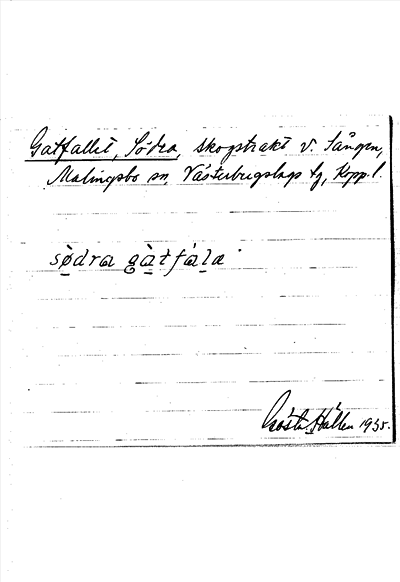 Gatfallet, Södra, skogstrakt v. Lången,
Malingsbo sn, Västerbergslags tg, Kopp. l.
södra gàtfála
Gösta Hållen 1935.